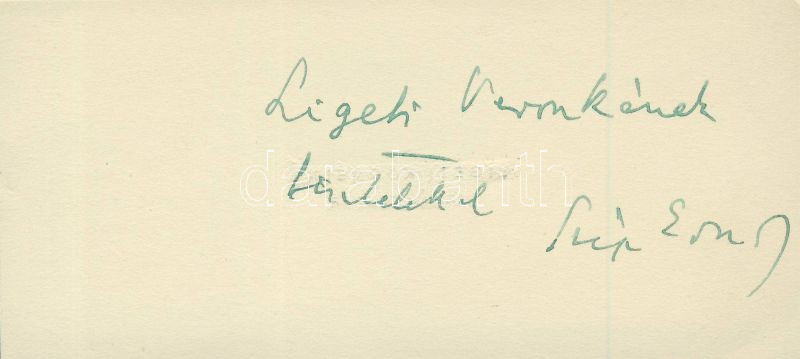 Ligeti Veronkának
tisztelettel
Szép Ernő
darabanth